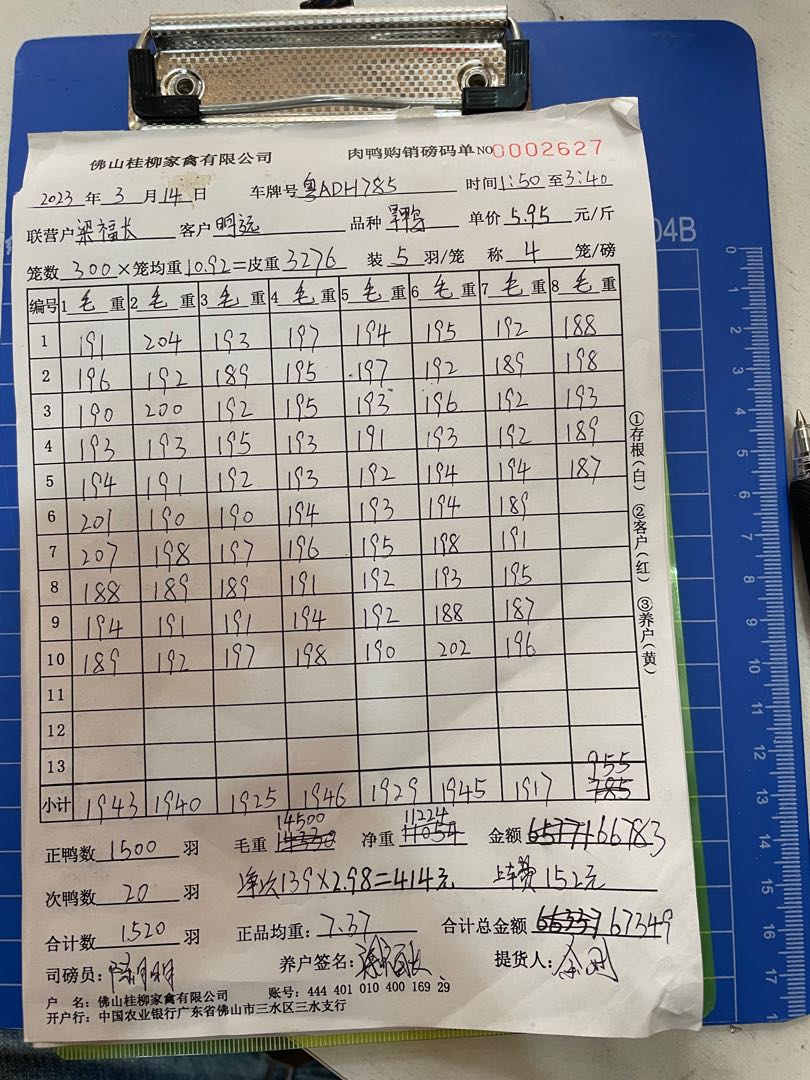 佛山桂柳家禽有限公司 肉鸭购销磅码单 NO0002627
2023年3月14日 车牌号粤ADH785 时间1:50至3:40
联营户梁福长 客户明远 品种 单价5.95元/斤
笼数300×笼均重10.92=皮重3276 装5羽/笼 称4笼/磅
编号 1毛重 2毛重 3毛重 4毛重 5毛重 6毛重 7毛重 8毛重
1 191 204 193 197 194 195 192 188
2 196 192 189 195 197 192 189 198
3 190 200 192 195 193 196 192 193
4 193 193 195 193 191 193 192 189
5 194 191 192 193 192 194 194 187
6 201 190 190 194 193 194 189
7 207 198 197 196 195 198 191
8 188 189 189 191 192 193 195
9 194 191 191 194 192 188 187
10 189 192 197 198 190 202 196
11
12
13
955
小计 1943 1940 1925 1946 1929 1945 1917 785
14500 11224
正鸭数1500羽 毛重 净重11054 金额66783
次鸭数20羽 净次139×2.98=414元 上车费152元
合计数1520羽 正品均重:7.37 合计总金额67349
司磅员: 养户签名: 提货人:
户 名: 佛山桂柳家禽有限公司 账号: 444 401 010 400 169 29
开户行: 中国农业银行广东省佛山市三水区三水支行
①存根(白) ②客户(红) ③养户(黄)
04B
0 1 2 3 4 5 6 7 8 9 10 11 12 13 14 15 16 17 1